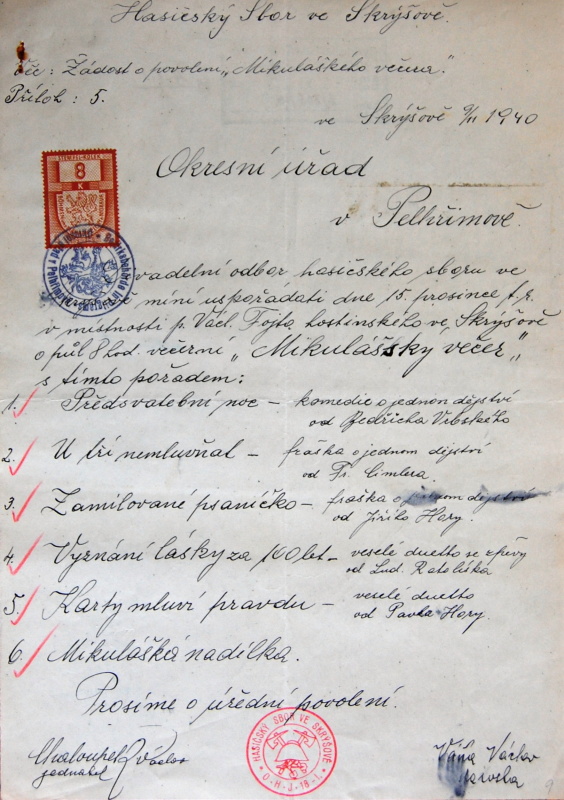 Hasičský Sbor ve Skrýšově.
Věc: Žádost o povolení „Mikuláškého večera".
Příloh: 5.
ve Skrýšově 9/11 1940
STEMPEL-KOLEK
8
K
Okresní úřad
v Pelhřimově.
vadelní odbor hasičského sboru ve
míní uspořádati dne 15. prosince t.r.
v místnosti p. Václ. Fojta, hostinského ve Skrýšově
o půl 8 hod. večerní „Mikulášsky večer„
s tímto pořadem:
1. Předsvatební noc - komedie o jednom dějství
od Bedřicha Vrbského
2. U tří nemluvňat - fraška o jednom dějství
od Fr. Cimlera.
3. Zamilované psaníčko - fraška o jednom dějství
od Jiřího Hory.
4. Vyznání lásky za 100 let - veselé duetto se zpěvy
od Lud. Ratoliska
5. Karty mluví pravdu - veselé duetto
od Pavla Hory.
6. Mikulášká nadílka.
Prosíme o úřední povolení.
HASIČSKÝ SBOR VE SKRÝŠOVĚ
O-H-J-18-I.
Chaloupek Václav
jednatel
Váňa Václav
starosta
9